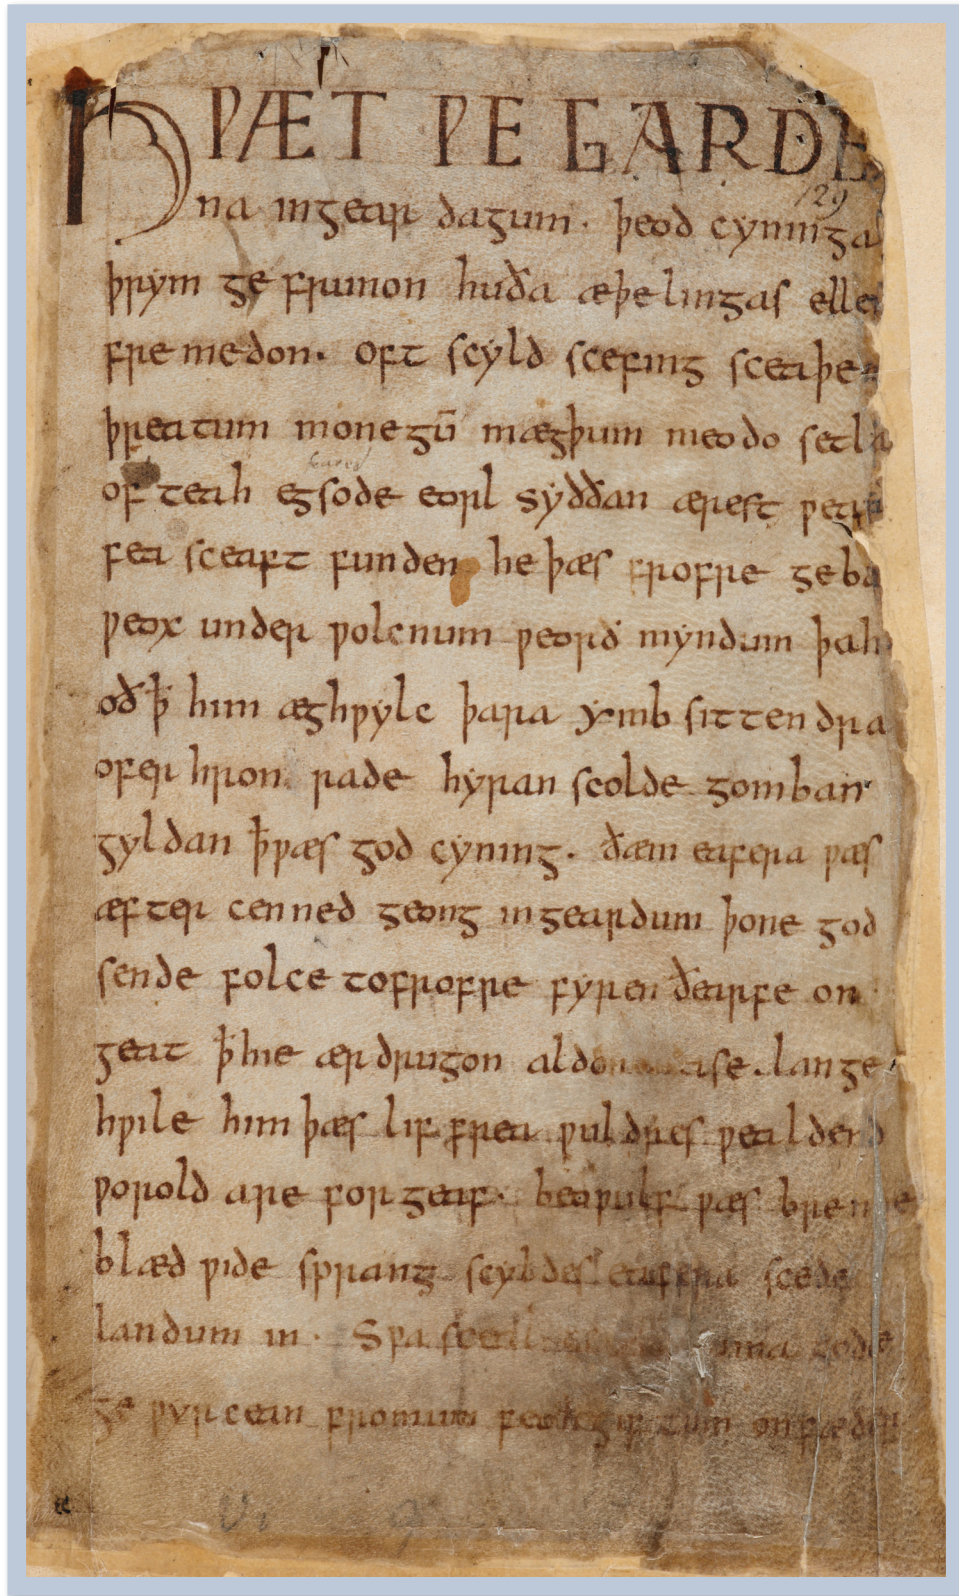 HǷÆT ǷE GARDE
na ingear dagum · þeod cyninga
129
þrym ge frunon huða æþelingas elle
fre medon. oft scyld scefing sceaþe
þreatum monegū mægþum meodo setla
of teah egsode eorl syððan ærest ƿea
fea sceaft funden he þæs frofre geba
ƿeox under ƿolcnum ƿeorð myndum þah
oð ꝥ him æghƿylc þara ymb sittendra
ofer hron rade hyran scolde gomban
gyldan ꝥ ƿæs god cyning · ðæm eafera ƿæs
æfter cenned geong in geardum þone god
sende folce tofrofre fyren ðearfe on
geat ꝥ hie ær drugon aldo ase . lange
hƿile him þæs lif frea ƿuldres ƿealdend
ƿorold are for geaf · beoƿulf ƿæs breme
blæd ƿide sprang scyldes eafera scede
landum in · Sƿa sceal uma gode
ge ƿyrcean fromum feoh giftum on fæder